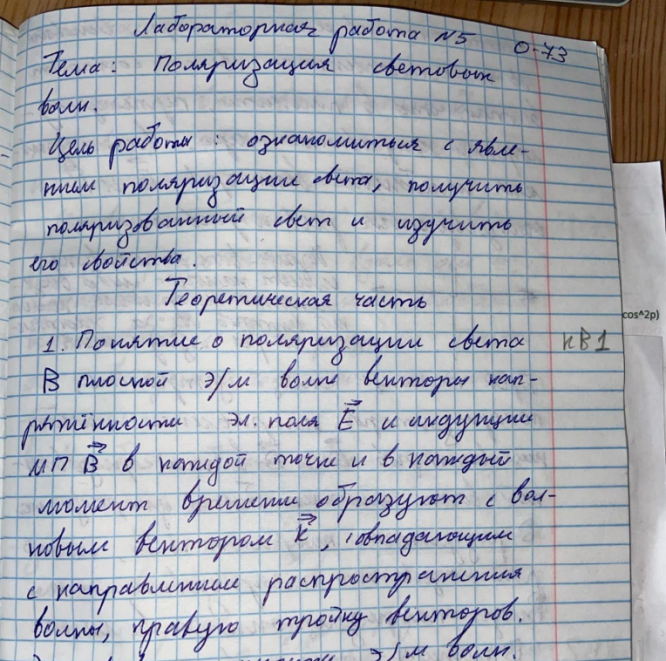 Лабораторная работа №5 0-73
Тема: Поляризация световых
волн.
Цель работы: ознакомиться с явле-
нием поляризации света, получить
поляризованный свет и изучить
его свойства.
Теоретическая часть
cos^2p)
1. Понятие о поляризации света КВ1
В плоской э/м волне векторы нап-
ряжённости эл. поля E⃗ и индукции
МП B⃗ в каждой точке и в каждый
момент времени образуют с вол-
новым вектором k⃗, совпадающим
с направлением распространения
волны, правую тройку векторов.
э/м волн.